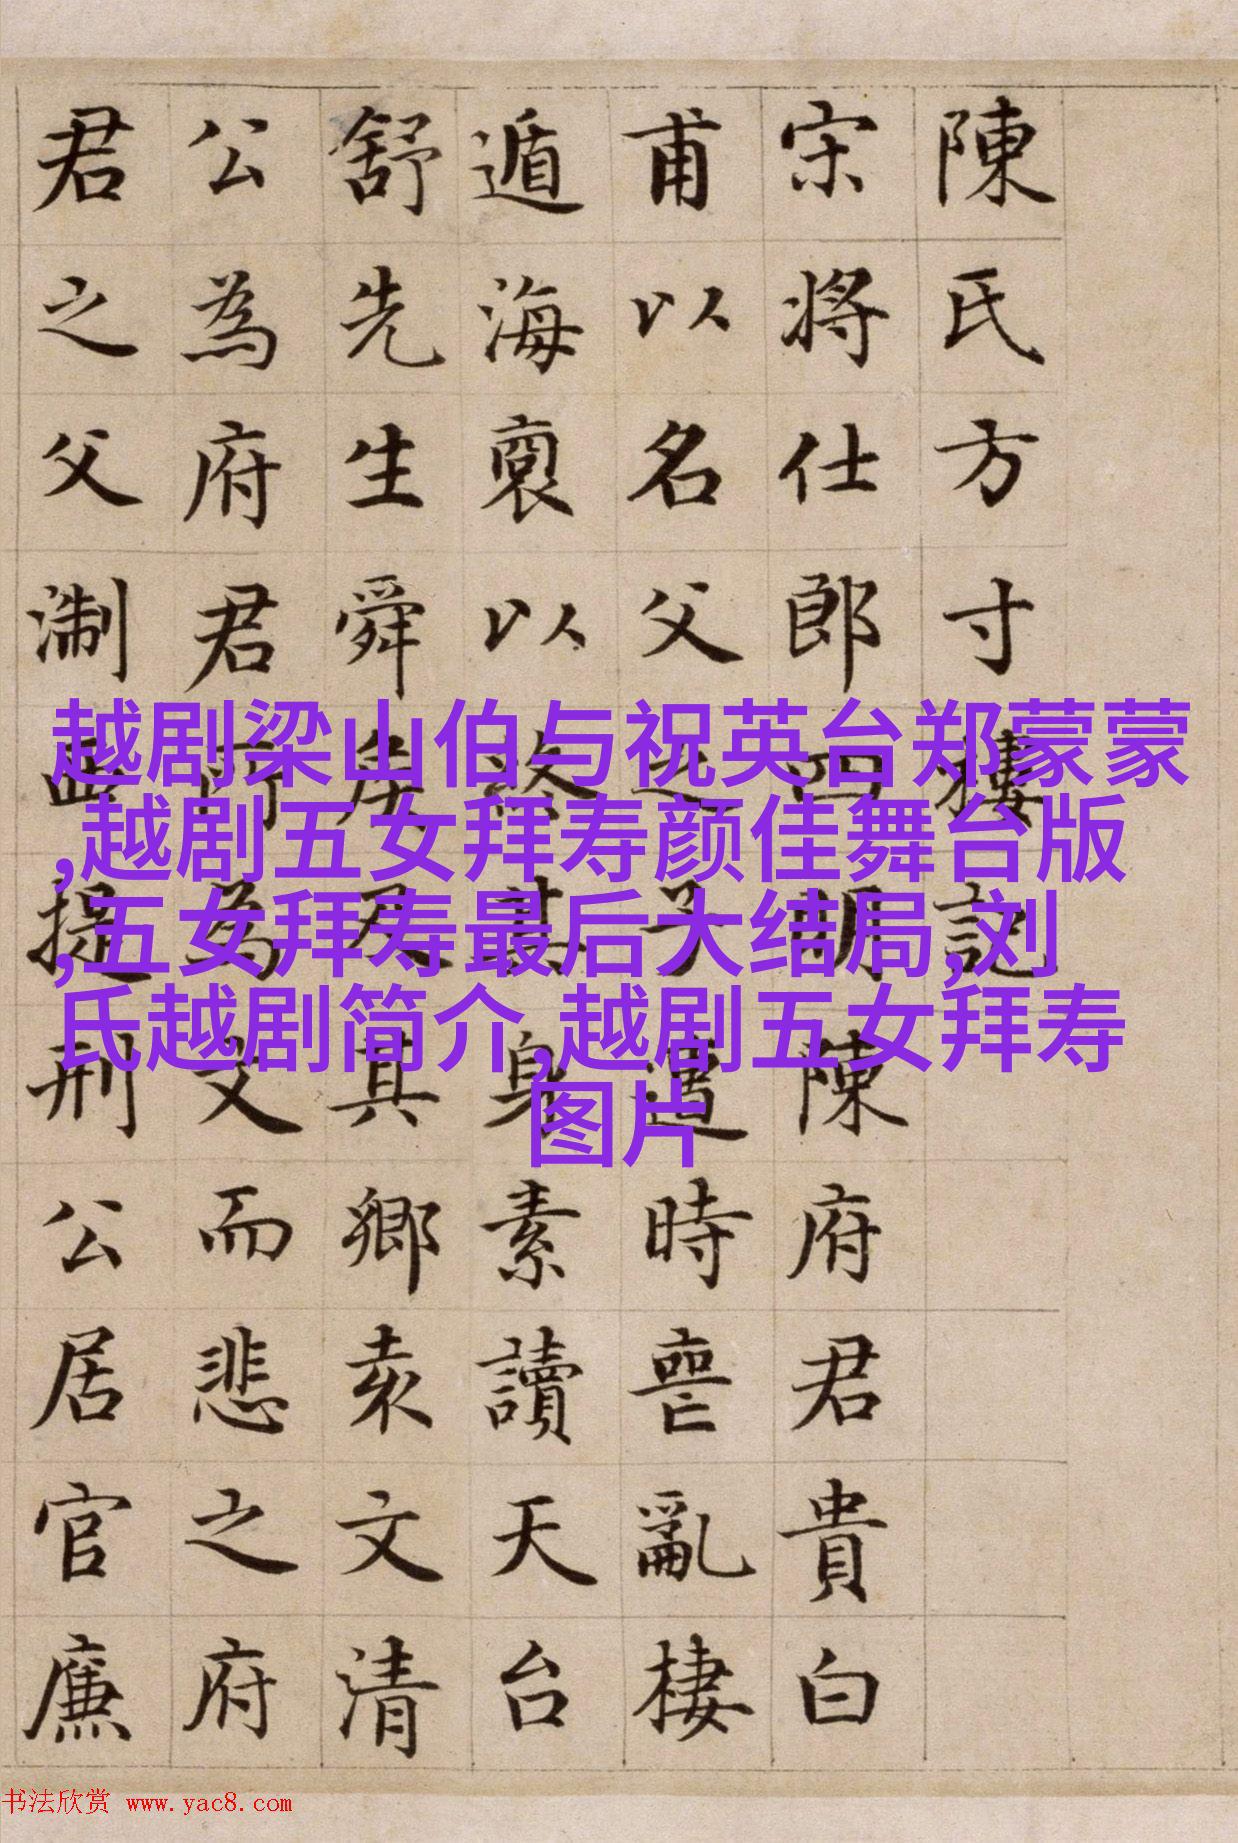 陳氏方寸樓記
宋將仕郎四明陳府君貴白
甫以名父之子遭時喪亂棲
遁海裔以終其身素讀天台
舒先生舜侯及其鄉袁文清
公為府君所為文而悲之府
君之父淛西提刑公居官廉
越剧梁山伯与祝英台郑蒙蒙
,越剧五女拜寿颜佳舞台版
,五女拜寿最后大结局,刘
氏越剧简介,越剧五女拜寿
图片
书法欣赏 www.yac8.com